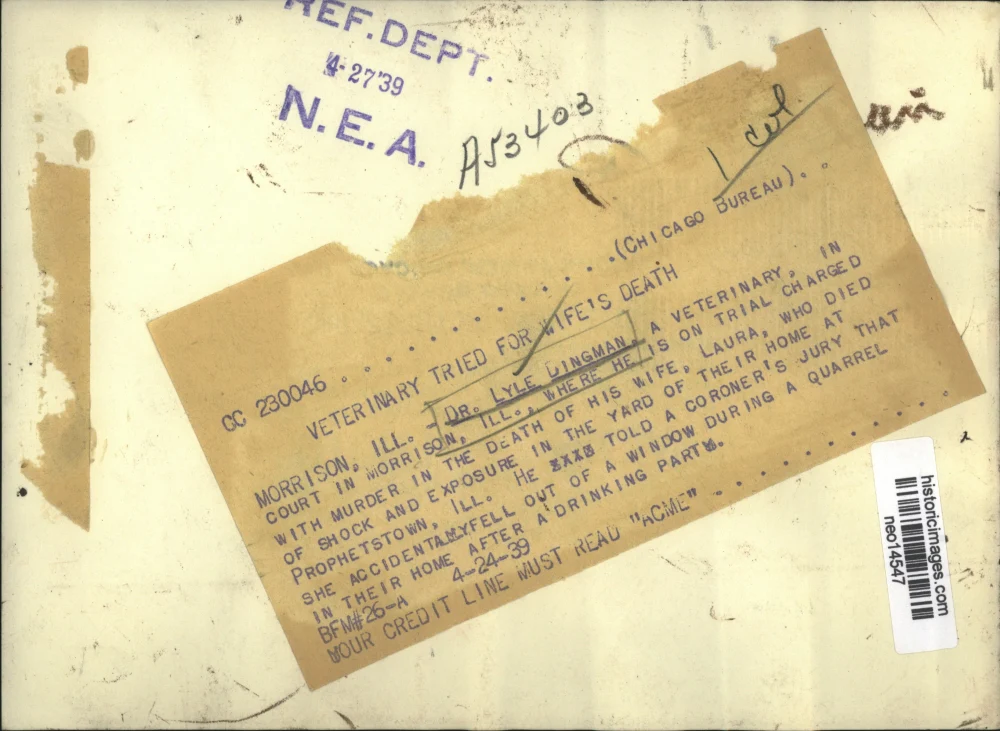 REF.DEPT.
4-27'39
N.E.A.
A53403
1 col.
CC 230046 . . . . . . . . . . . . . (CHICAGO BUREAU). . .
VETERINARY TRIED FOR WIFE'S DEATH
MORRISON, ILL. - DR. LYLE DINGMAN, A VETERINARY, IN
COURT IN MORRISON, ILL., WHERE HE IS ON TRIAL CHARGED
WITH MURDER IN THE DEATH OF HIS WIFE, LAURA, WHO DIED
OF SHOCK AND EXPOSURE IN THE YARD OF THEIR HOME AT
PROPHETSTOWN, ILL. HE TOLD A CORONER'S JURY THAT
SHE ACCIDENTALLYFELL OUT OF A WINDOW DURING A QUARREL
IN THEIR HOME AFTER A DRINKING PARTY.
BFM#26-A 4-24-39
YOUR CREDIT LINE MUST READ "ACME" . . . . . . . . . . .
historicimages.com
neo14547